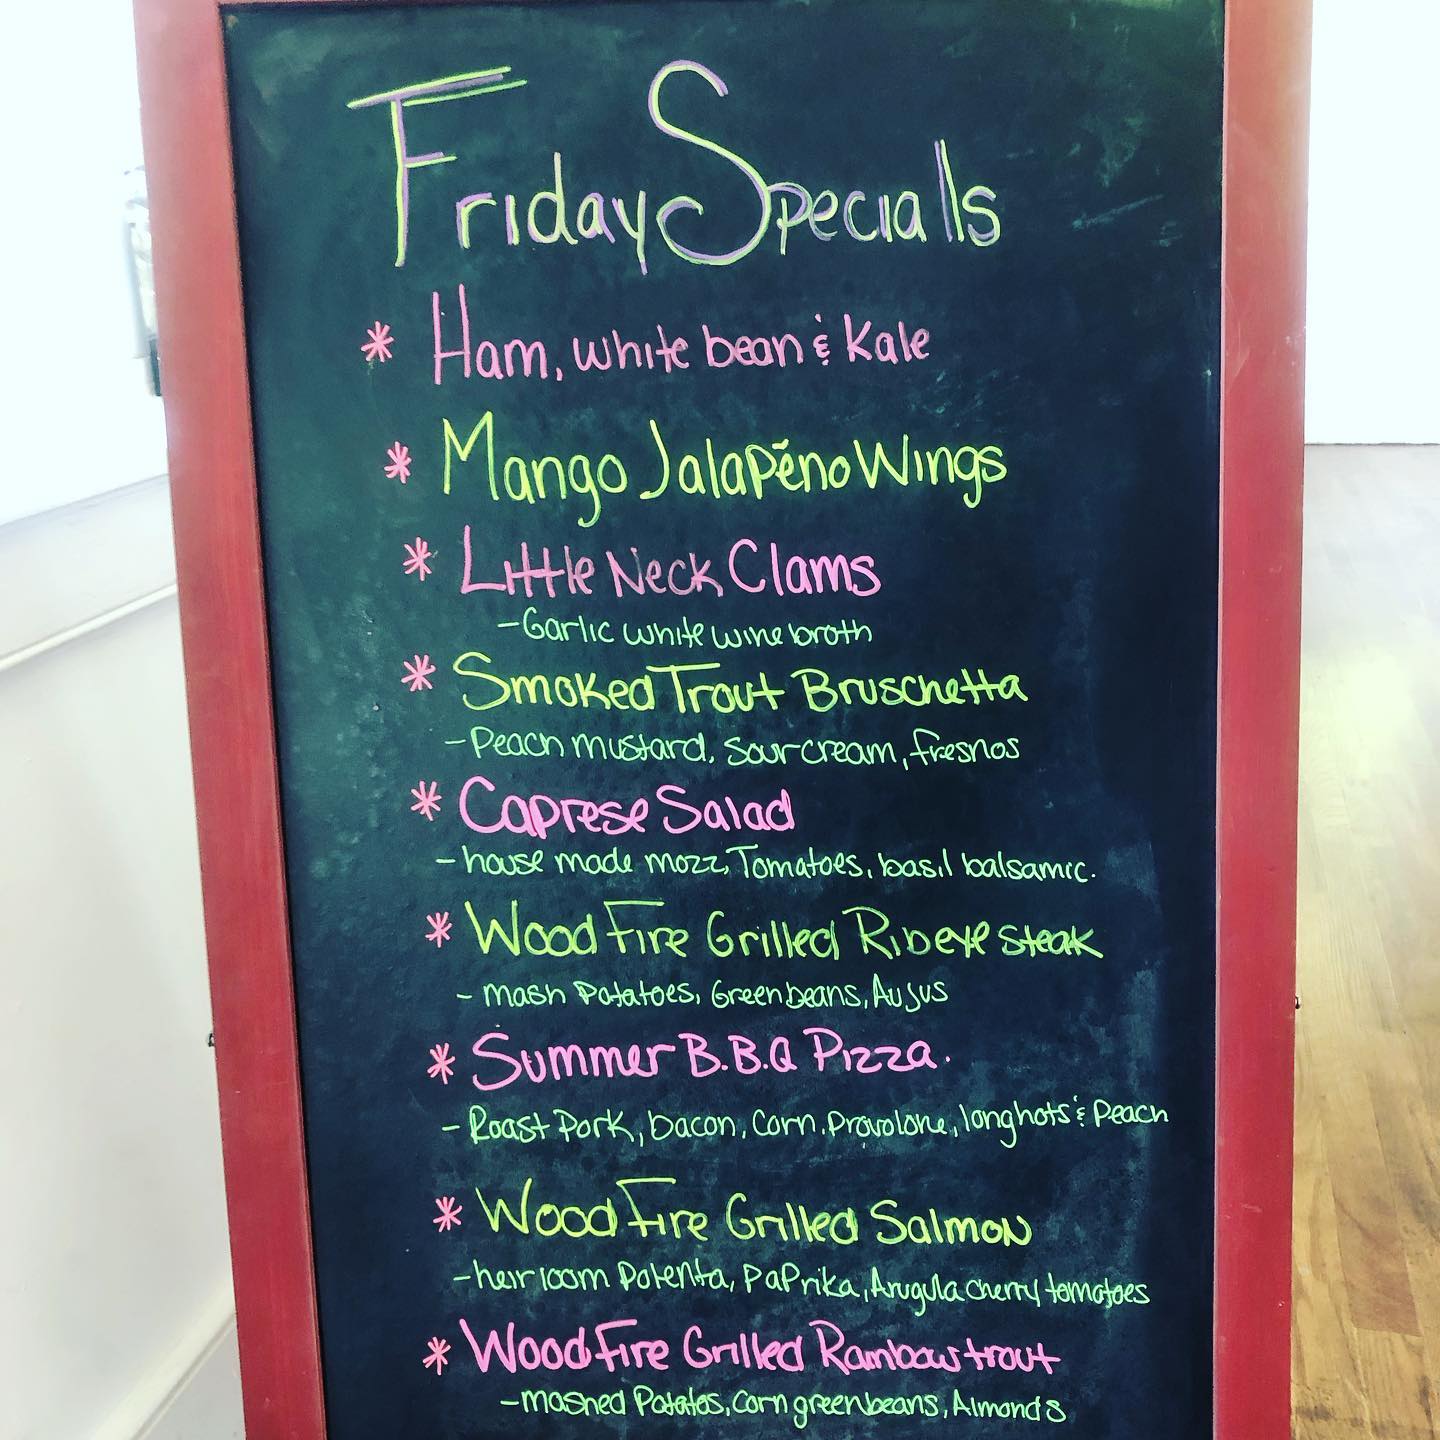 Friday Specialls
* Ham, white bean & Kale
* Mango Jalapéno Wings
* Little Neck Clams
- Garlic white wine broth
* Smoked Trout Bruschetta
- Peach mustard, sour cream, fresnos
* Caprese Salad
- house made mozz, Tomatoes, basil balsamic.
* Wood Fire Grilled Ribeye steak
- mash Potatoes, Green beans, Au Jus
* Summer B.B.Q Pizza.
- Roast Pork, bacon, Corn, Provolone, longhots & Peach
* Wood Fire Grilled Salmon
- heirloom Polenta, Paprika, Arugula cherry tomatoes
* Wood Fire Grilled Rainbow trout
- mashed Potatos, Corn green beans, Almonds